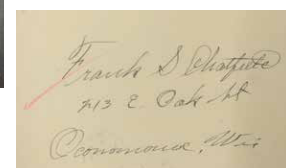 Frank S Chatfield
213 E Oak St
Oconomowoc, Wis